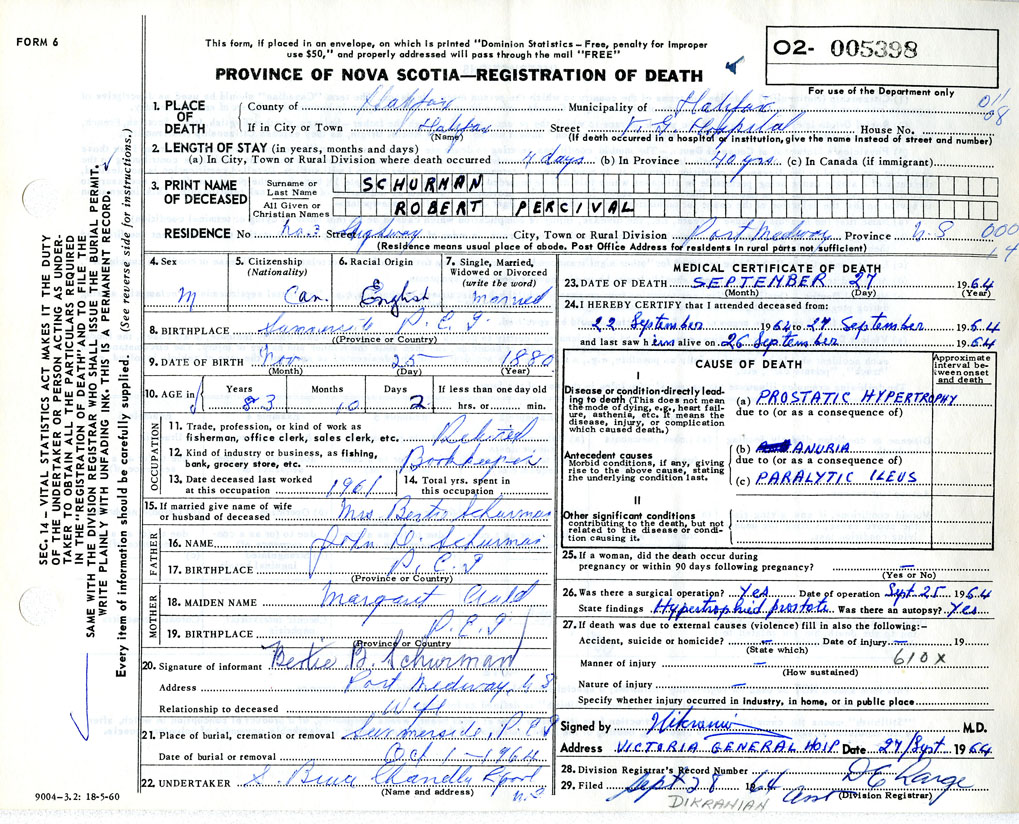 FORM 6
This form, if placed in an envelope, on which is printed "Dominion Statistics – Free, penalty for improper
use $50," and properly addressed will pass through the mail "FREE"
PROVINCE OF NOVA SCOTIA—REGISTRATION OF DEATH
02- 005398
For use of the Department only
011
08
1. PLACE OF DEATH
County of Halifax Municipality of Halifax
If in City or Town Halifax Street V. G. Hospital House No.
(Name) (If death occurred in a hospital or institution, give the name instead of street and number)
2. LENGTH OF STAY (in years, months and days)
(a) In City, Town or Rural Division where death occurred 4 days (b) In Province 40 yrs (c) In Canada (if immigrant)
3. PRINT NAME OF DECEASED
Surname or Last Name SCHURMAN
All Given or Christian Names ROBERT PERCIVAL
RESIDENCE No No. 3 Street Highway City, Town or Rural Division Port Medway Province N.S 000
(Residence means usual place of abode. Post Office Address for residents in rural parts not sufficient)
4. Sex M
5. Citizenship (Nationality) Can.
6. Racial Origin English
7. Single, Married, Widowed or Divorced (write the word) married
8. BIRTHPLACE P.E.I
(Province or Country)
9. DATE OF BIRTH Nov 25 1880
(Month) (Day) (Year)
10. AGE in Years 83 Months 10 Days 2 If less than one day old hrs. or min.
OCCUPATION
11. Trade, profession, or kind of work as fisherman, office clerk, sales clerk, etc. Retired
12. Kind of industry or business, as fishing, bank, grocery store, etc. Bookkeeper
13. Date deceased last worked at this occupation 1961
14. Total yrs. spent in this occupation
15. If married give name of wife or husband of deceased Mrs. Bertie Schurman
FATHER
16. NAME John D. Schurman
17. BIRTHPLACE P.E.I
(Province or Country)
MOTHER
18. MAIDEN NAME Margaret Auld
19. BIRTHPLACE P.E.I
(Province or Country)
20. Signature of informant Bertie B. Schurman
Address Port Medway, N S
Relationship to deceased Wife
21. Place of burial, cremation or removal Summerside, P.E.I
Date of burial or removal Oct 1 – 1964
22. UNDERTAKER S. Bruce Chandler L'pool N.S
(Name and address)
9004–3.2: 18-5-60
SEC. 14 – VITAL STATISTICS ACT MAKES IT THE DUTY
OF THE UNDERTAKER OR PERSON ACTING AS UNDERTAKER
TO OBTAIN ALL THE PARTICULARS REQUIRED
IN THE "REGISTRATION OF DEATH" AND TO FILE THE
SAME WITH THE DIVISION REGISTRAR WHO SHALL ISSUE THE BURIAL PERMIT.
WRITE PLAINLY WITH UNFADING INK. THIS IS A PERMANENT RECORD.
Every item of information should be carefully supplied. (See reverse side for instructions.)
MEDICAL CERTIFICATE OF DEATH
23. DATE OF DEATH SEPTEMBER 27 1964
(Month) (Day) (Year)
24. I HEREBY CERTIFY that I attended deceased from:
22 September 1964 to 27 September 1964
and last saw him alive on 26 September 1964
CAUSE OF DEATH
Approximate interval between onset and death
I
Disease or condition directly leading to death (This does not mean the mode of dying, e.g., heart failure, asthenia, etc. It means the disease, injury, or complication which caused death.)
(a) PROSTATIC HYPERTROPHY
due to (or as a consequence of)
Antecedent causes
Morbid conditions, if any, giving rise to the above cause, stating the underlying condition last.
(b) ANURIA
due to (or as a consequence of)
(c) PARALYTIC ILEUS
II
Other significant conditions
contributing to the death, but not related to the disease or condition causing it.
25. If a woman, did the death occur during
pregnancy or within 90 days following pregnancy? –
(Yes or No)
26. Was there a surgical operation? Yes Date of operation Sept. 25 1964
State findings Hypertrophied prostate Was there an autopsy? Yes
27. If death was due to external causes (violence) fill in also the following:–
Accident, suicide or homicide? – Date of injury – 19
(State which)
610X
Manner of injury –
(How sustained)
Nature of injury –
Specify whether injury occurred in industry, in home, or in public place
Signed by M.D.
Address VICTORIA GENERAL HOIP Date 27/Sept 1964
28. Division Registrar's Record Number
29. Filed Sept 28 1964
(Division Registrar)
DIKRANIAN